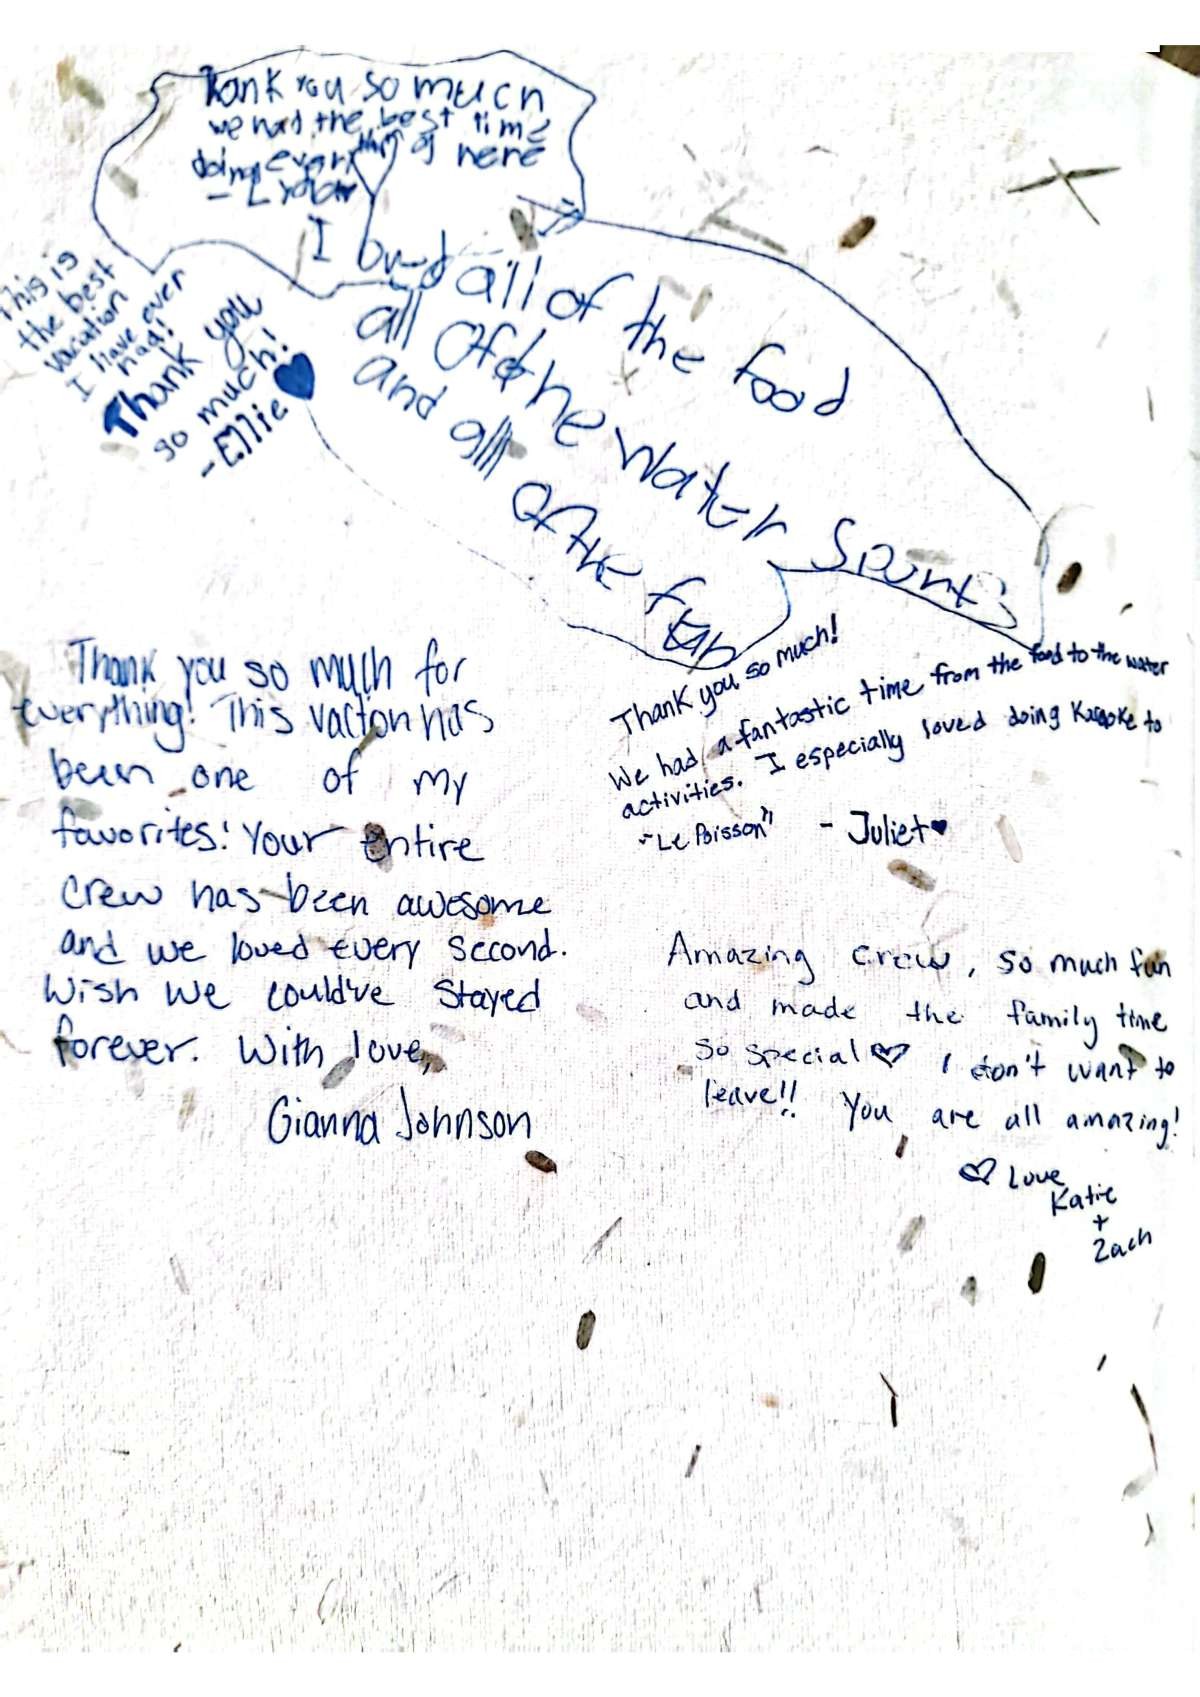 Thank you so much
we had the best time
doing everything here
I all of the food
all Of the water Sports
and all Of the fun
This is
the best
vacation
I have ever
had!
Thank you
so much!
-Ellie
Thank you so much for
everything! This vaction has
been one of my
favorites! Your entire
crew has been awesome
and we loved every second.
Wish we could've stayed
forever. With love,
Gianna Johnson
Thank you so much!
We had a fantastic time from the food to the water
activities. I especially loved doing Karaoke to
"Le Poisson" - Juliet
Amazing crew, so much fun
and made the family time
so special I don't want to
leave!! You are all amazing!
Love
Katie
+
Zach